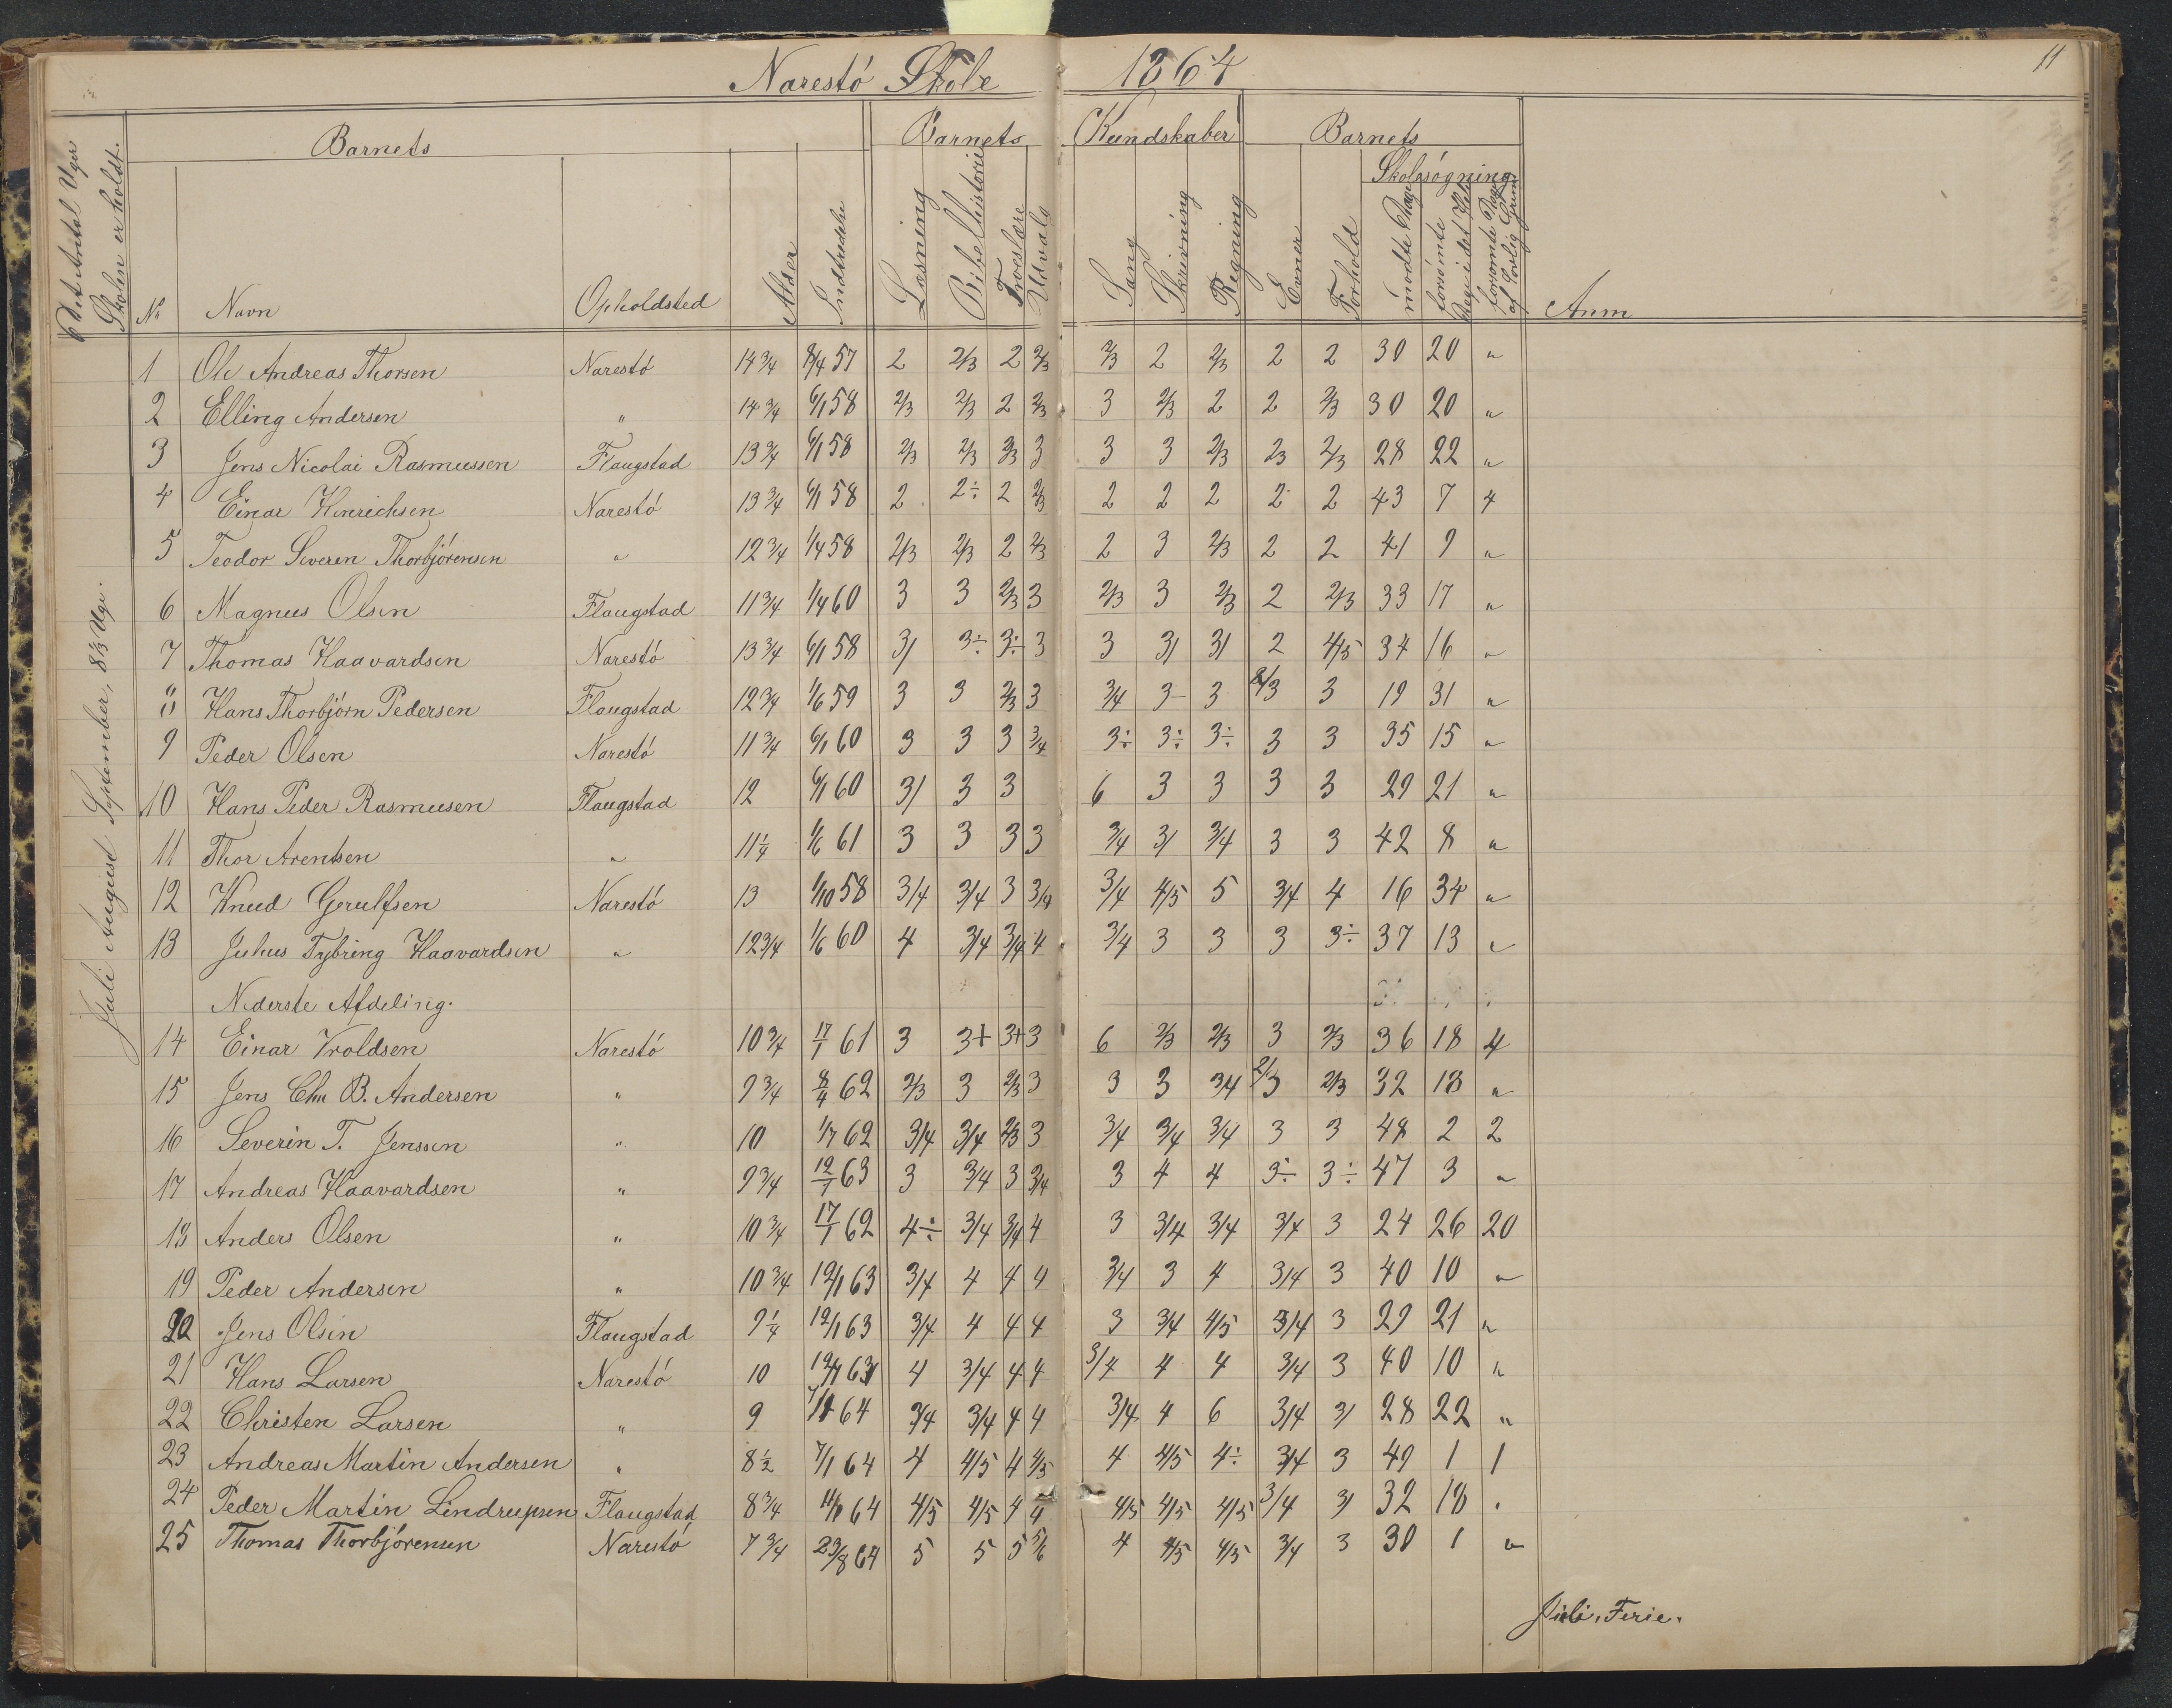 Narestö Skole 1864
11
Det Antal Uger Skolen er holdt.
Barnets
Barnets Kundskaber
Barnets
Skolesøgning
No Navn Opholdsted Alder Indtrædelse Læsning Bibelhistorie Troeslære Udvalg Sang Skrivning Regning Evner Forhold mødte Dage forsømte Dage i det Hele forsømte Dage af lovlig Grund Anm
Juli August September, 8⅓ Uge.
1 Ole Andreas Thorsen Narestö 14¾ 8/4 57 2 2/3 2 2/3 2/3 2 2/3 2 2 30 20 "
2 Elling Andersen " 14¾ 6/1 58 2/3 2/3 2 2/3 3 2/3 2 2 2/3 30 20 "
3 Jens Nicolai Rasmussen Flaugstad 13¾ 6/1 58 2/3 2/3 2/3 3 3 3 2/3 2/3 2/3 28 22 "
4 Einar Henrichsen Narestö 13¾ 6/1 58 2 2÷ 2 2/3 2 2 2 2 2 43 7 4
5 Teodor Severin Thorbjörensen " 12¾ 1/4 58 2/3 2/3 2 2/3 2 3 2/3 2 2 41 9 "
6 Magnus Olsen Flaugstad 11¾ 1/4 60 3 3 2/3 3 2/3 3 2/3 2 2/3 33 17 "
7 Thomas Haavardsen Narestö 13¾ 6/1 58 3/ 3÷ 3÷ 3 3 3/ 3/ 2 4/5 34 16 "
8 Hans Thorbjörn Pedersen Flaugstad 12¾ 1/6 59 3 3 2/3 3 3/4 3- 3 2/3 3 19 31 "
9 Peder Olsen Narestö 11¾ 6/1 60 3 3 3 3/4 3÷ 3÷ 3÷ 3 3 35 15 "
10 Hans Peder Rasmusen Flaugstad 12 6/1 60 3/ 3 3 6 3 3 3 3 29 21 "
11 Thor Arentsen " 11¼ 1/6 61 3 3 3 3 3/4 3/ 3/4 3 3 42 8 "
12 Knud Gerulfsen Narestö 13 1/10 58 3/4 3/4 3 3/4 3/4 4/5 5 3/4 4 16 34 "
13 Julius Tybring Haavardsen " 12¾ 1/6 60 4 3/4 3/4 4 3/4 3 3 3 3÷ 37 13 "
Nederste Afdeling.
14 Einar Vroldsen Narestö 10¾ 17/1 61 3 3+ 3+ 3 6 2/3 2/3 3 2/3 36 18 4
15 Jens Chr B. Andersen " 9¾ 8/4 62 2/3 3 2/3 3 3 3 3/4 2/3 2/3 32 18 "
16 Severin T. Jenssen " 10 1/7 62 3/4 3/4 2/3 3 3/4 3/4 3/4 3 3 48 2 2
17 Andreas Haavardsen " 9¾ 12/1 63 3 3/4 3 3/4 3 4 4 3÷ 3÷ 47 3 "
18 Anders Olsen " 10¾ 17/1 62 4÷ 3/4 3/4 4 3 3/4 3/4 3/4 3 24 26 20
19 Peder Andersen " 10¾ 12/1 63 3/4 4 4 4 3/4 3 4 3/4 3 40 10 "
20 Jens Olsen Flaugstad 9¼ 12/1 63 3/4 4 4 4 3 3/4 4/5 3/4 3 29 21 "
21 Hans Larsen Narestö 10 63 4 3/4 4 4 3/4 4 4 3/4 3 40 10 "
22 Christen Larsen " 9 7/1 64 3/4 3/4 4 4 3/4 4 6 3/4 3/ 28 22 "
23 Andreas Martin Andersen " 8½ 7/1 64 4 4/5 4 4/5 4 4/5 4÷ 3/4 3 49 1 1
24 Peder Martin Lindrupsen Flaugstad 8¾ 64 4/5 4/5 4 4 4/5 4/5 4/5 3/4 3/ 32 18 "
25 Thomas Thorbjörensen Narestö 7¾ 23/8 64 5 5 5 5/6 4 4/5 4/5 3/4 3 30 1 "
Juli, Ferie.